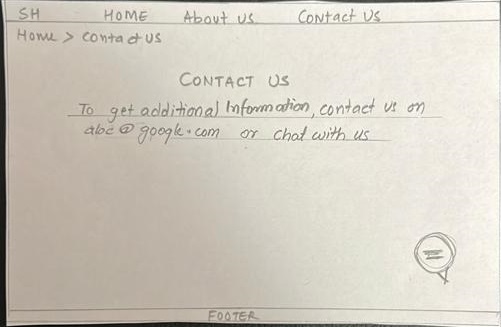 SH HOME About us Contact Us
Home > contact us
CONTACT US
To get additional Information, contact us on
abc@google.com or chat with us
FOOTER